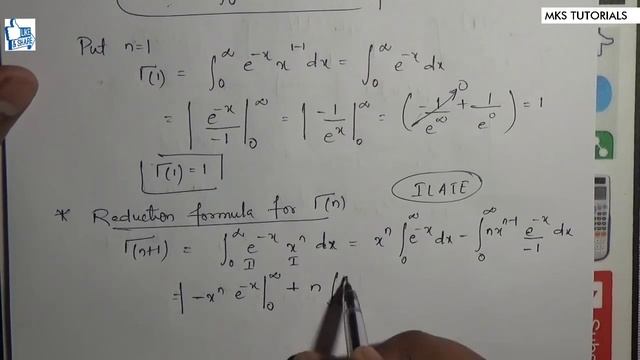 MKS TUTORIALS
LIKE & SHARE
Put n=1
Γ(1) = ∫₀^∞ e^{-x} x^{1-1} dx = ∫₀^∞ e^{-x} dx
= | e^{-x}/-1 |₀^∞ = | -1/e^x |₀^∞ = ( -1/e^∞ 0 + 1/e^0 ) = 1
Γ(1) = 1
ILATE
* Reduction formula for Γ(n)
Γ(n+1) = ∫₀^∞ e^{-x} x^n dx = x^n ∫₀^∞ e^{-x} dx - ∫₀^∞ n x^{n-1} e^{-x}/-1 dx
II I
= | -x^n e^{-x} |₀^∞ + n ∫